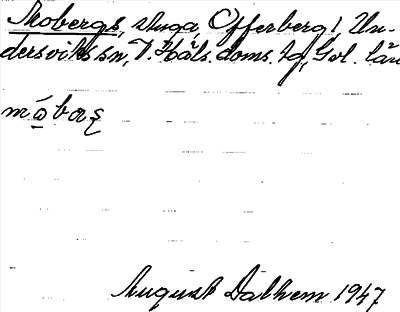 Mobergs, stuga, Offerberg 1, Un-
dersviks sn, V. Häls. doms. tg, Gvl. län
August Dalhem 1947